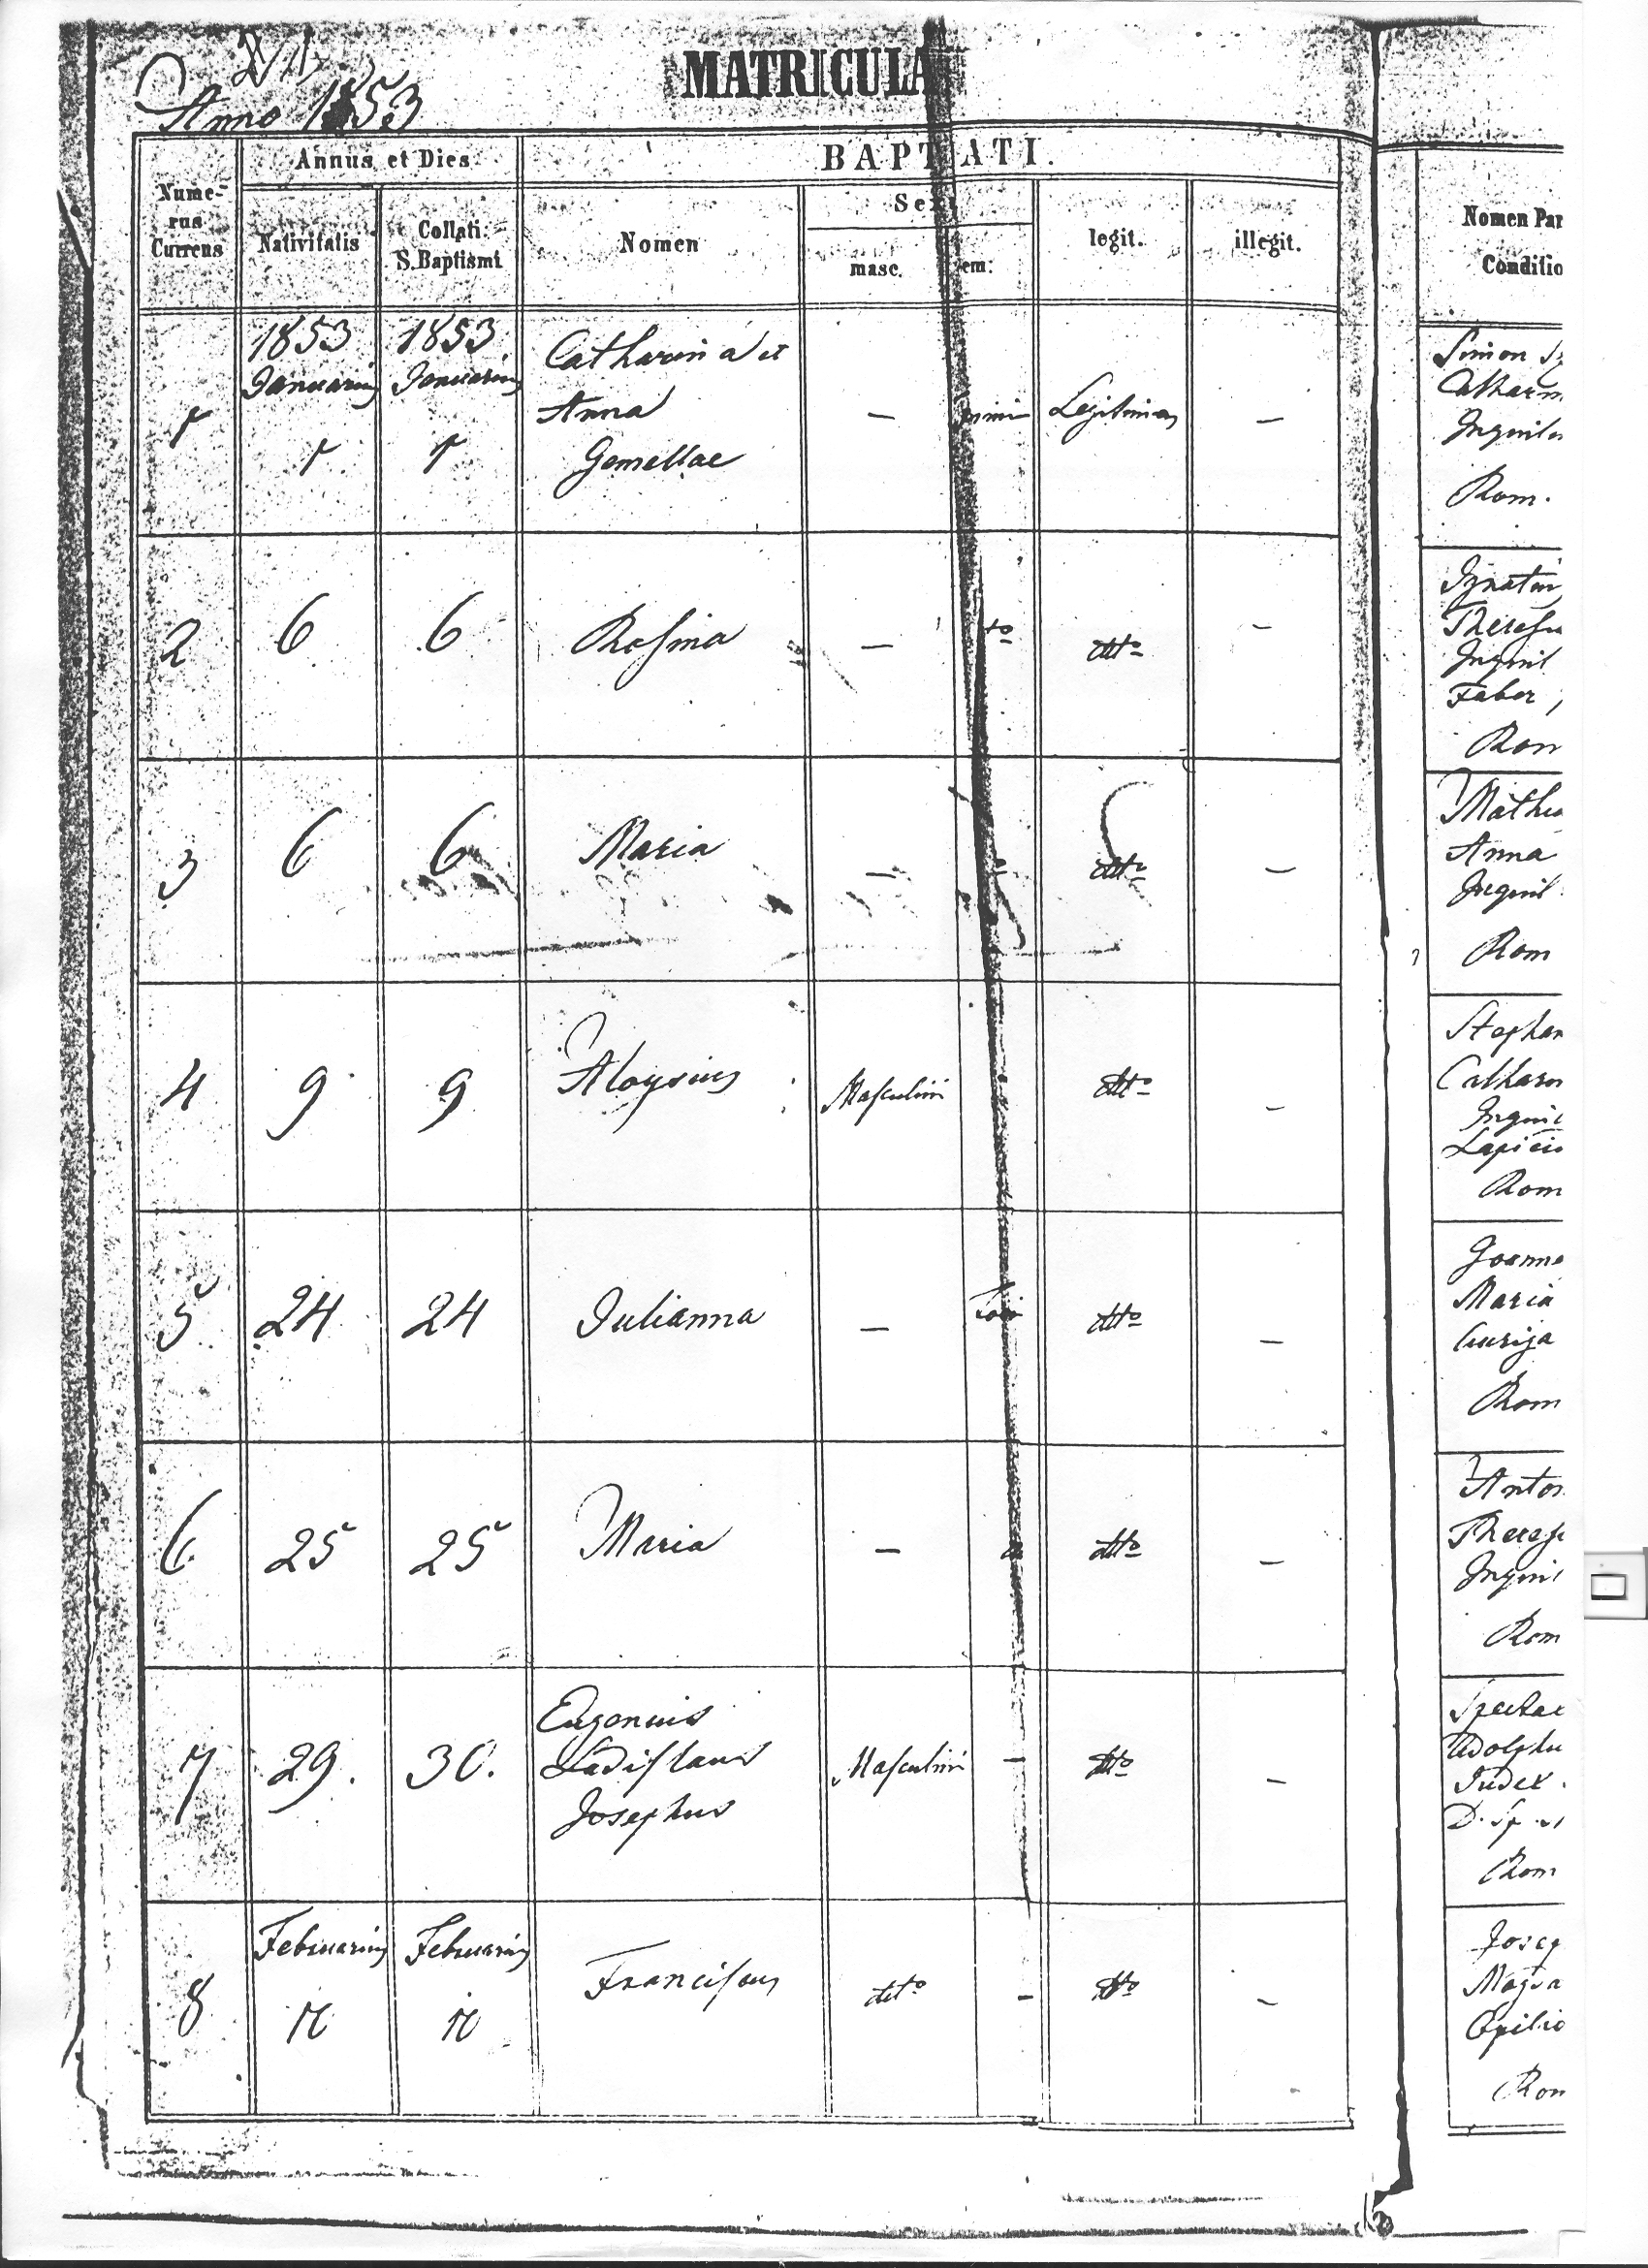 Anno 1853
MATRICULA
Nume-
rus
Currens
Annus et Dies
Nativitatis
Collati
S. Baptismi
BAPTIZATI.
Nomen
Sexus
masc.
fem:
legit.
illegit.
Nomen Par
Conditio
1853 1853
Januarius Januarius
1 1 1
Catharina et
Anna
Gemellae
—
Legitimae
—
Simon
Catharin
Inquilin
Rom.
2 6 6 Rosina — dtto —
Ignatiu
Theresia
Inquil
Faber,
Rom
3 6 6 Maria — dtto —
Mathia
Anna
Inquil
Rom
4 9 9 Aloysius Masculini dtto —
Stephan
Cathar
Inquil
Lapici
Rom
5 24 24 Julianna — dtto —
Joanne
Maria
Auriga
Rom
6 25 25 Maria — dtto —
Anton
Theres
Inquil
Rom
7 29. 30.
Eugenius
Ladislaus
Josephus
Masculini — dtto —
Spectab
Adolphu
Judex
Rom
Februarius Februarius
8 Franciscus dtto — dtto —
Josep
Magda
Opilio
Rom